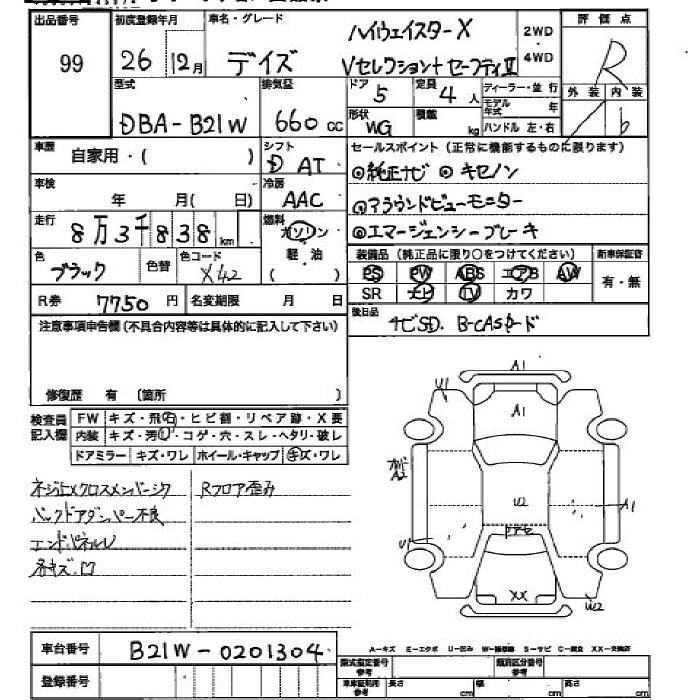 出品番号
99
初度登録年月
26年 12月
車名・グレード
デイズ
ハイウェイスター X
Vセレクション+セーフティII
2WD
・
4WD
評価点
R
外装 内装
型式
DBA-B21W
排気量
660 cc
ドア
5
定員
4 人
ディーラー・並 行
モデル年式 年
ハンドル 左・右
形状
WG
積載
kg
車歴
自家用・( )
シフト
D AT
セールスポイント(正常に機能するものに限ります)
◎純正ナビ ◎キセノン
◎アラウンドビューモニター
◎エマージェンシーブレーキ
車検
年 月( 日)
冷房
AAC
走行
8万3千838 km
燃料
ガソリン
・
軽 油
( )
色
ブラック
色替
色コード
X42
装備品(純正品に限り○をつけてください)
新車保証書
PS PW ABS エアB AW
SR ナビ TV カワ
有・無
R券
7750 円
名変期限 月 日
後日品
ナビSD. B-CASカード
注意事項申告欄(不具合内容等は具体的に記入して下さい)
修復歴 有 (箇所 )
検査員記入欄
FW キズ・飛石・ヒビ割・リペア跡・X要
内装 キズ・汚レ・コゲ・穴・スレ・ヘタリ・破レ
ドアミラー キズ・ワレ ホイール・キャップ キズ・ワレ
バックドアダンパー不良
エンドパネルU
各キズ.凹
Rフロア歪み
A1
U1
A1
A2
U2
A1
U1
XX
W2
車台番号
B21W-0201304
登録番号
A-キズ E-エクボ U-凹み W-補修跡 S-サビ C-腐食 XX-交換済
型式指定番号
参考
類別区分番号
参考
車車証明用
参考
長さ cm
幅 cm
高さ cm